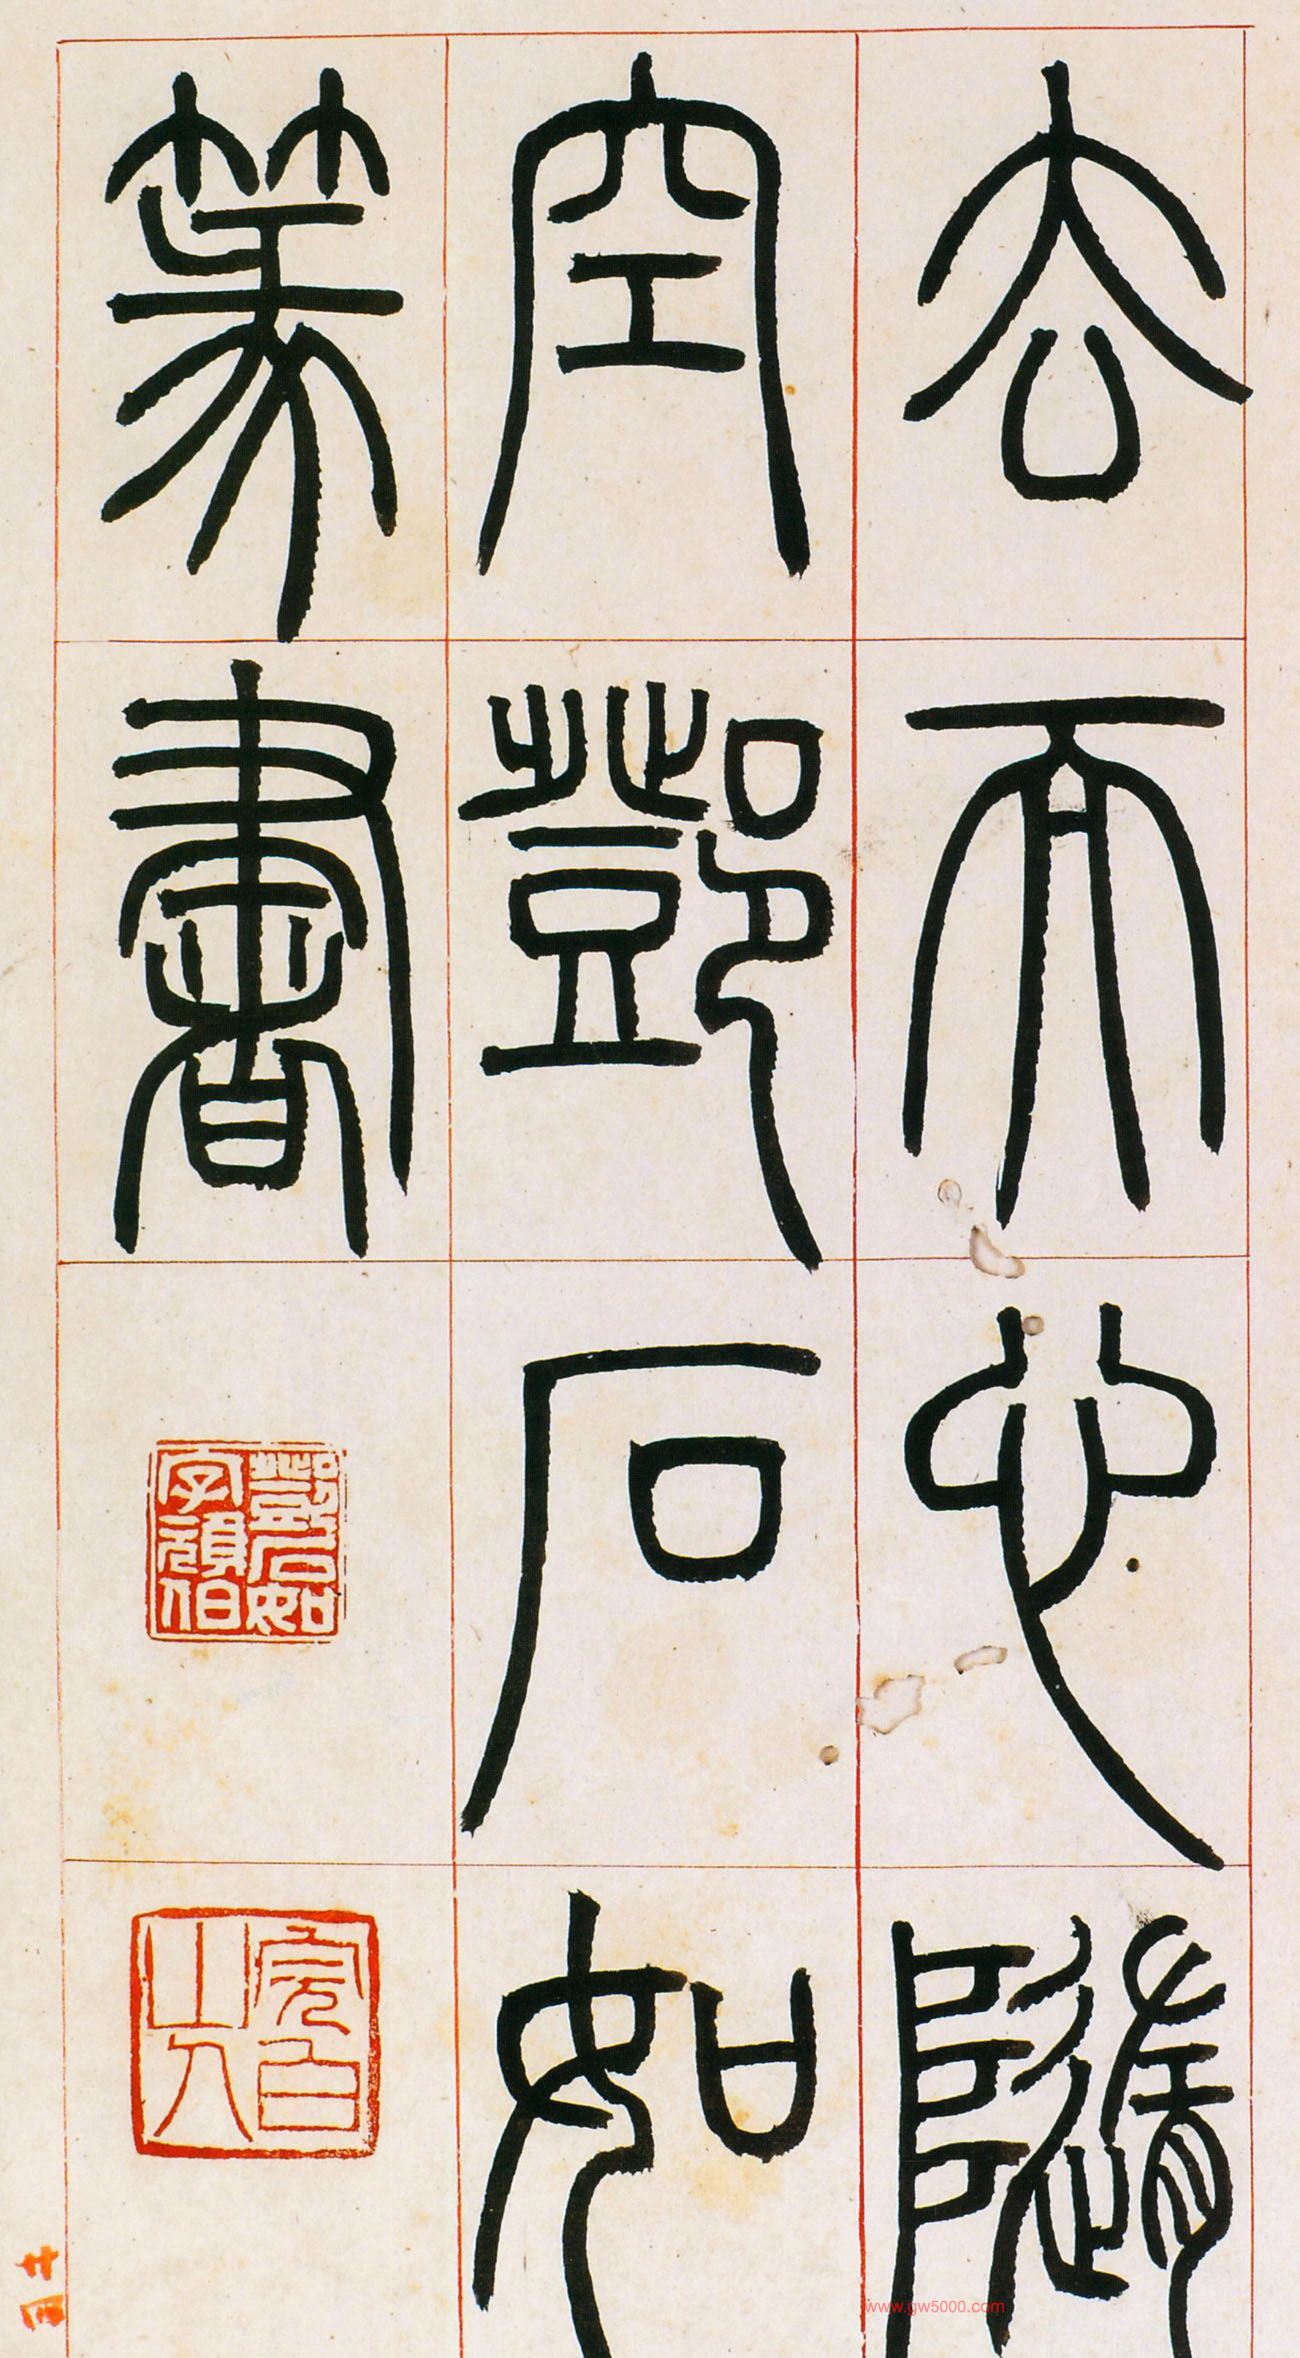 去而也隨
空鄧石如
篆書
鄧石如
字頑伯
完白
山人
www.gw5000.com